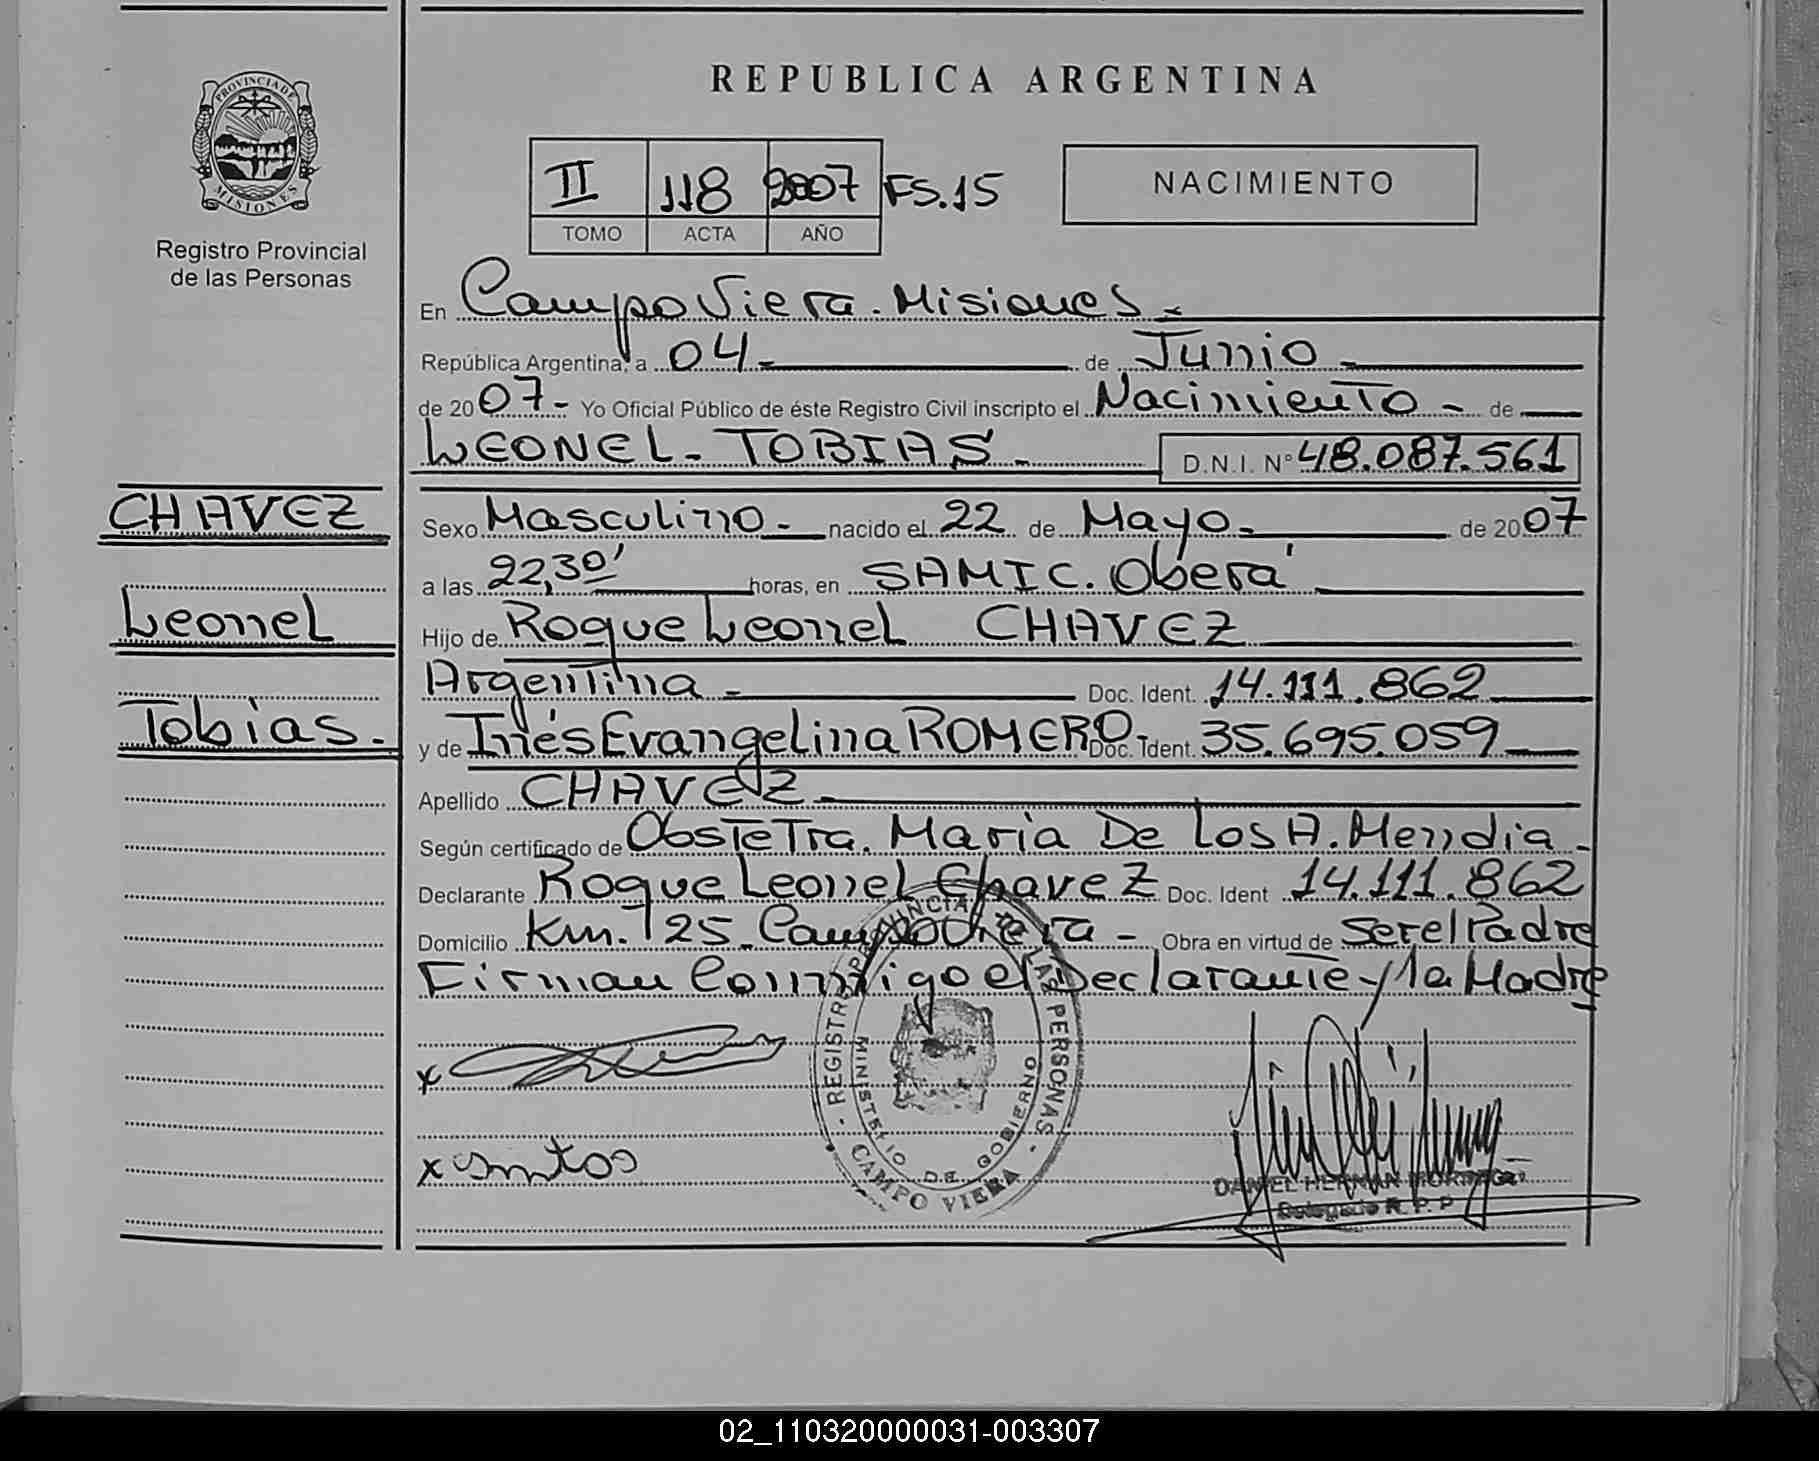 REPUBLICA ARGENTINA
PROVINCIA DE MISIONES
Registro Provincial
de las Personas
II 118 2007 FS.15
TOMO ACTA AÑO
NACIMIENTO
En Campo Viera. Misiones.-
República Argentina, a 04.- de Junio.-
de 2007- Yo Oficial Público de éste Registro Civil inscripto el Nacimiento- de
LEONEL- TOBIAS.- D.N.I. Nº 48.087.561
CHAVEZ
Leonel
Tobias.-
Sexo Masculino.- nacido el 22 de Mayo.- de 2007
a las 22,30' horas, en SAMIC. Oberá
Hijo de Roque Leonel CHAVEZ
Argentina.- Doc. Ident. 14.111.862
y de Inés Evangelina ROMERO.- Doc. Ident. 35.695.059
Apellido CHAVEZ.-
Según certificado de Obstetra. Maria De Los A. Mendia.-
Declarante Roque Leonel Chavez Doc. Ident. 14.111.862
Domicilio Km. 125. Campo Viera- Obra en virtud de ser el Padre
Firman Conmigo el Declarante y la Madre
x
x
REGISTRO PROVINCIAL DE LAS PERSONAS
MINISTERIO DE GOBIERNO
CAMPO VIERA
DANIEL HERNAN
Delegado R. P. P.
02_110320000031-003307